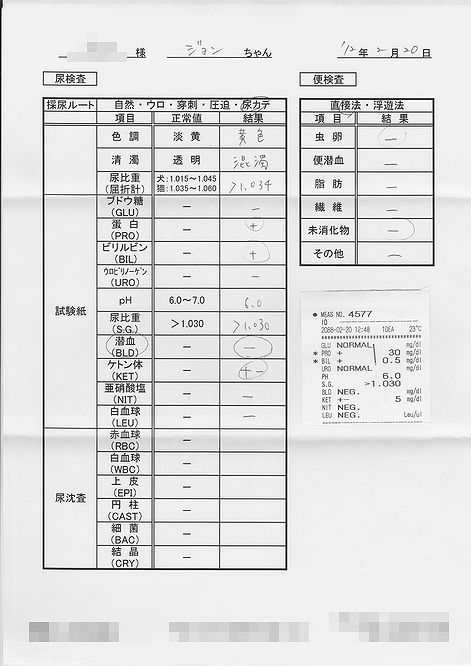 様 ジョン ちゃん '12年 2月 20日
尿検査
採尿ルート 自然・ウロ・穿刺・圧迫・尿カテ
項目 正常値 結果
色調 淡黄 黄色
清濁 透明 混濁
尿比重(屈折計) 犬:1.015~1.045 猫:1.035~1.060 >1.034
試験紙
ブドウ糖(GLU) − −
蛋白(PRO) − +
ビリルビン(BIL) − +
ウロビリノーゲン(URO) − −
pH 6.0~7.0 6.0
尿比重(S.G.) >1.030 >1.030
潜血(BLD) − −
ケトン体(KET) − +-
亜硝酸塩(NIT) − −
白血球(LEU) − −
尿沈査
赤血球(RBC) −
白血球(WBC) −
上皮(EPI) −
円柱(CAST) −
細菌(BAC) −
結晶(CRY) −
便検査
直接法・浮遊法
項目 結果
虫卵 −
便潜血 −
脂肪 −
繊維 −
未消化物 −
その他 −
● MEAS NO. 4577
ID
2088-02-20 12:48 10EA 23°C
GLU NORMAL mg/dl
* PRO + 30 mg/dl
* BIL + 0.5 mg/dl
URO NORMAL mg/dl
PH 6.0
S.G. >1.030
BLD NEG. mg/dl
KET +- 5 mg/dl
NIT NEG.
LEU NEG. Leu/ul